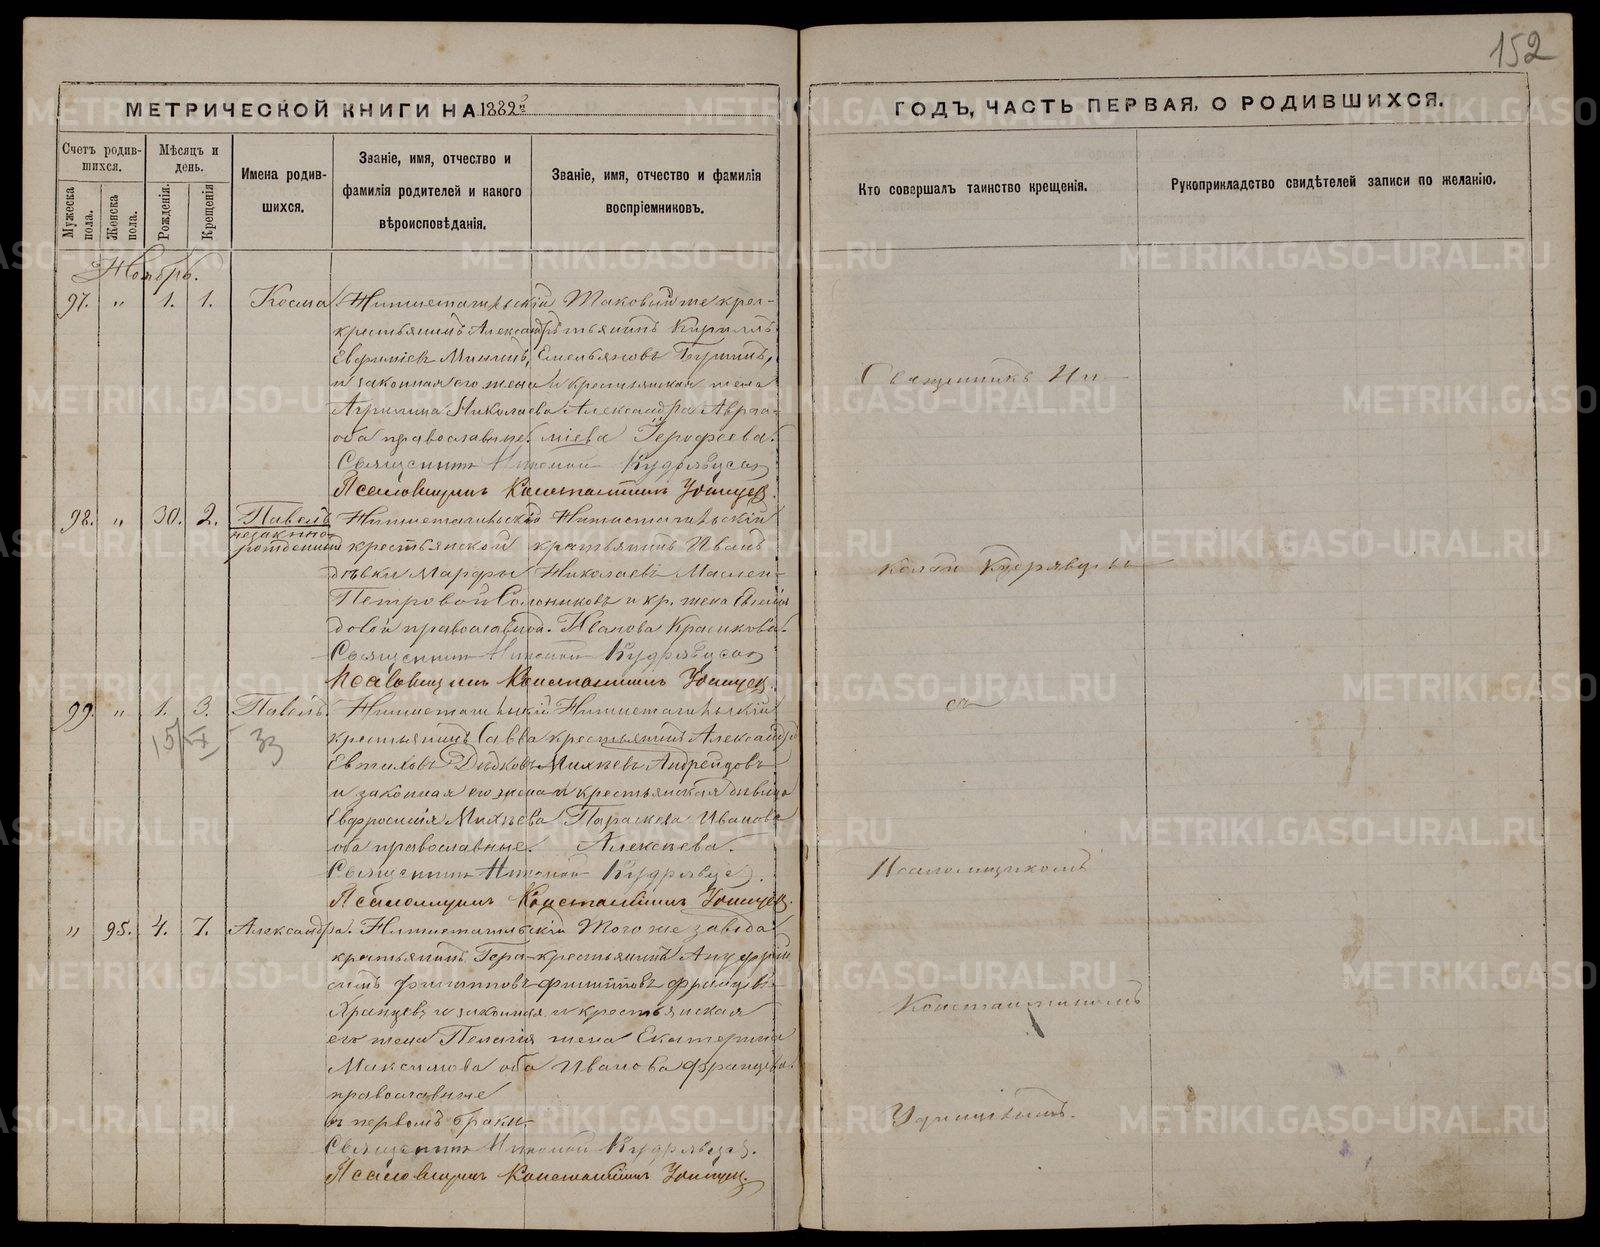 152
МЕТРИЧЕСКОЙ КНИГИ НА 1882й
ГОДЪ, ЧАСТЬ ПЕРВАЯ, О РОДИВШИХСЯ.
Счетъ родив-
шихся.
Мѣсяцъ и
день.
Мужеска
пола.
Женска
пола.
Рожденія.
Крещенія
Имена родив-
шихся.
Званіе, имя, отчество и
фамилія родителей и какого
вѣроисповѣданія.
Званіе, имя, отчество и фамилія
воспріемниковъ.
Кто совершалъ таинство крещенія.
Рукоприкладство свидѣтелей записи по желанію.
Ноябрь.
97. " 1. 1. Косма
Нижнетагильскій
крестьянинъ Александръ
и законная его жена
Агрипина Николаева
оба православные.
Таковыйже крес-
тьянинъ Кириллъ
Емельяновъ
и крестьянская жена
Александра
Ерофеева.
Священникъ Николай Кудрявцевъ
Псаломщикъ Константинъ Удинцев.
98. " 30. 2. Павелъ
незаконно-
рожденный
Нижнетагильской
крестьянской
дѣвки Марфы
Петровой
православной.
Нижнетагильскій
крестьянинъ Иванъ
Николаевъ
и кр. жена
Иванова Красикова.
Священникъ Николай Кудрявцевъ
Псаломщикъ Константинъ Удинцев.
99. " 1. 3. Павелъ.
33
Нижнетагильскій
крестьянинъ Савва
Евтиховъ Дѣдковъ
и законная его жена
Евфросинія Михѣева
оба православные.
Нижнетагильскій
крестьянинъ Александръ
Михѣевъ
и крестьянская дѣвица
Параскева Иванова
Алексѣева.
Священникъ Николай Кудрявцев.
Псаломщикъ Константинъ Удинцев.
" 95. 4. 7. Александра.
Нижнетагильскій
крестьянинъ Гера-
симъ Филипповъ
Францевъ и законная
его жена Пелагія
Максимова оба
православные
въ первомъ бракѣ
Того же завода
крестьянинъ
Филипповъ Францевъ
и крестьянская
жена Екатерина
Иванова Францева.
Священникъ Николай Кудрявцев.
Псаломщикъ Константинъ Удинцев.
Священникъ Ни-
колай Кудрявцевъ
съ
Псаломщикомъ
Константиномъ
Удинцевымъ.
METRIKI.GASO-URAL.RU